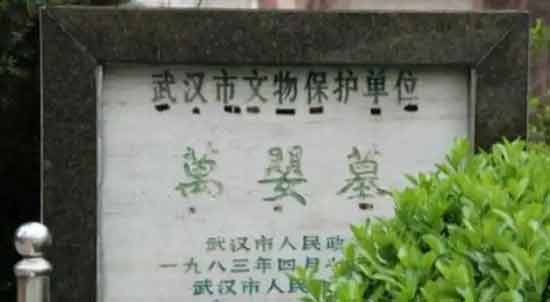 武汉市文物保护单位
萬婴墓
武汉市人民政
一九八三年四月
武汉市人民